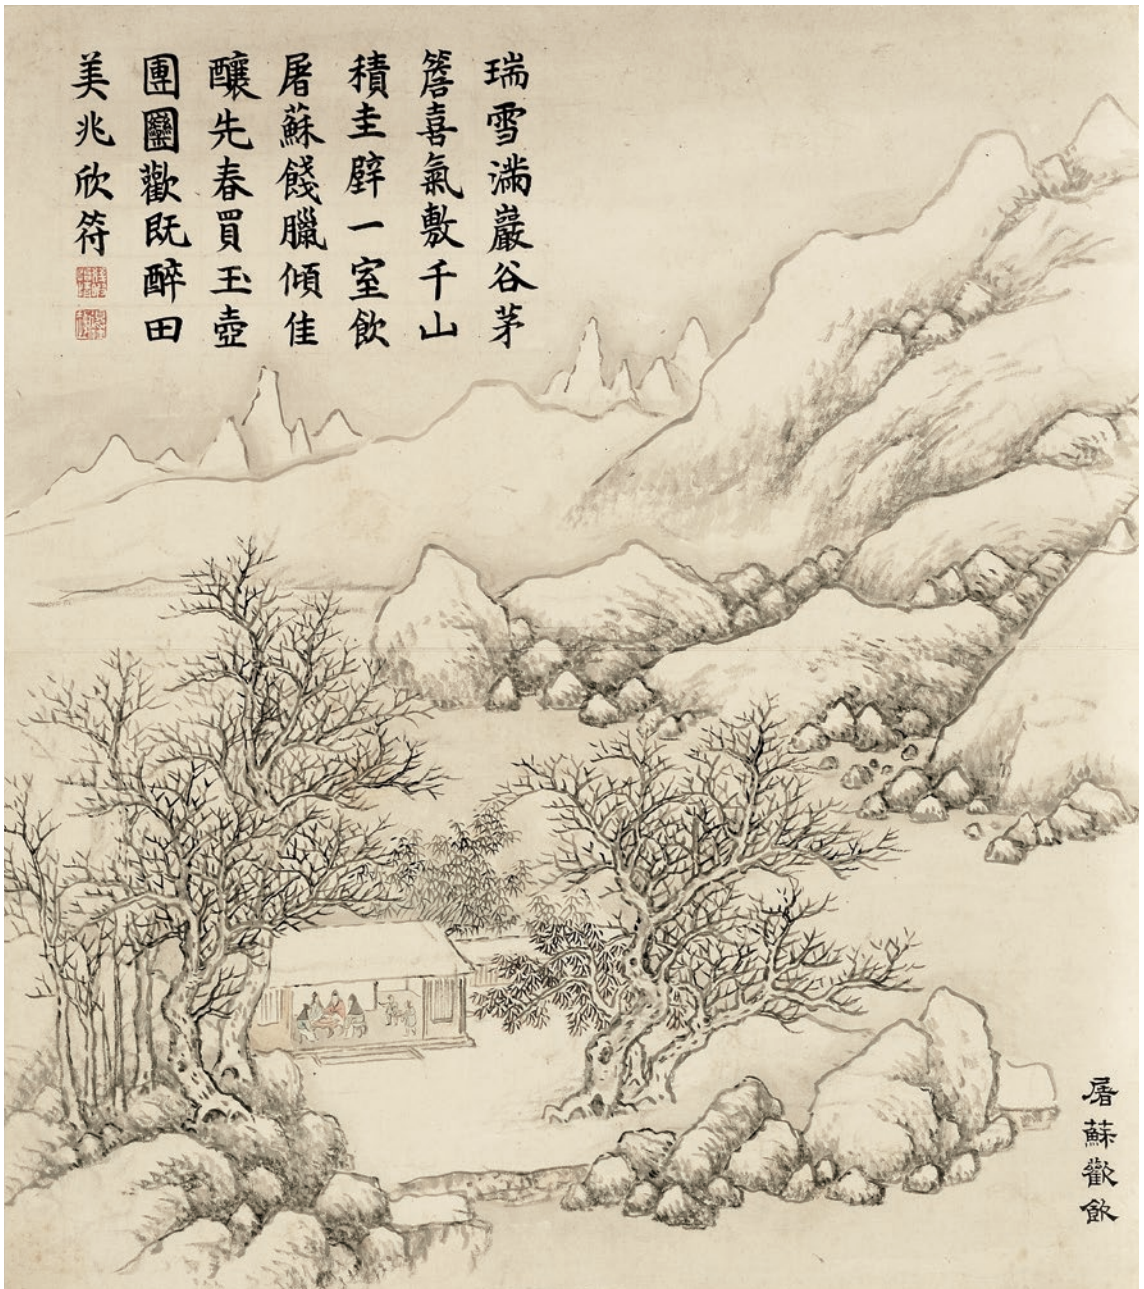 瑞雪滿巖谷茅
簷喜氣敷千山
積圭璧一室飲
屠蘇餞臘傾佳
釀先春買玉壺
團圞歡既醉田
美兆欣符
屠蘇歡飲